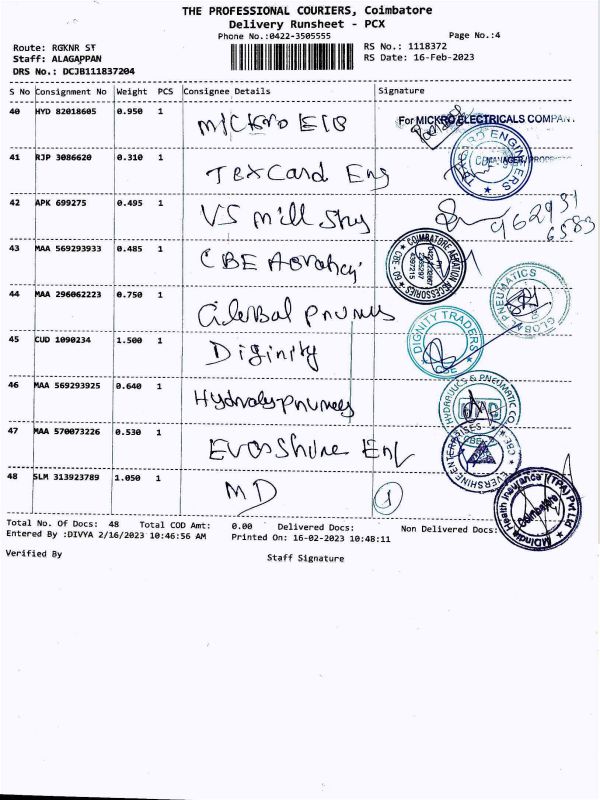 THE PROFESSIONAL COURIERS, Coimbatore
Delivery Runsheet - PCX
Phone No.:0422-3505555
Page No.:4
Route: RGKNR ST
RS No.: 1118372
Staff: ALAGAPPAN
RS Date: 16-Feb-2023
DRS No.: DCJB111837204
S No Consignment No Weight PCS Consignee Details Signature
40 HYD 82018605 0.950 1 For MICKRO ELECTRICALS COMPAN
Mickro Elc
41 RJP 3086620 0.310 1
TEXCard Eng
TEXCARD ENGINEERS
42 APK 699275 0.495 1
VS Mill
43 MAA 569293933 0.485 1
CBE
COIMBATORE AERATION ACCESSORIES
44 MAA 296062223 0.750 1
GLOBAL PNEUMATICS
45 CUD 1090234 1.500 1
Diginity
DIGNITY TRADERS
CBE
46 MAA 569293925 0.640 1
HYDRAULICS & PNEUMATIC CO
47 MAA 570073226 0.530 1
EVERSHINE ENTERPRISES
48 SLM 313923789 1.050 1
MD 1
MDIndia Health Insurance (TPA) Pvt Ltd
Coimbatore
Total No. Of Docs: 48 Total COD Amt: 0.00 Delivered Docs: Non Delivered Docs:
Entered By :DIVYA 2/16/2023 10:46:56 AM Printed On: 16-02-2023 10:48:11
Verified By Staff Signature